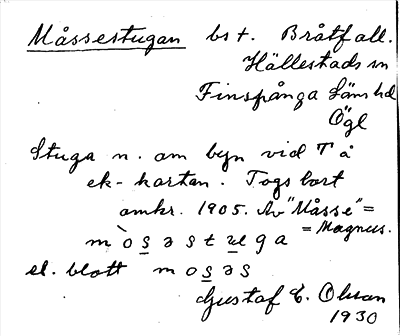 Måssestugan bst. Bråtfall.
Hällestads sn
Finspånga läns hd
Ögl
Stuga n. om byn vid T å
ek-kartan. Togs bort
omkr. 1905. Av "Måsse" =
= Magnus.
m ò s ə s t u g a
el. blott m o s ə s
Gustaf E. Olsson
1930